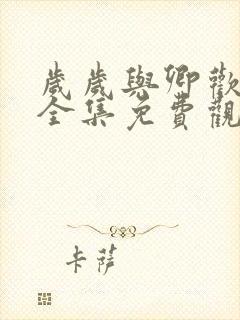 歲歲與卿歡
全集免費觀
卡薩